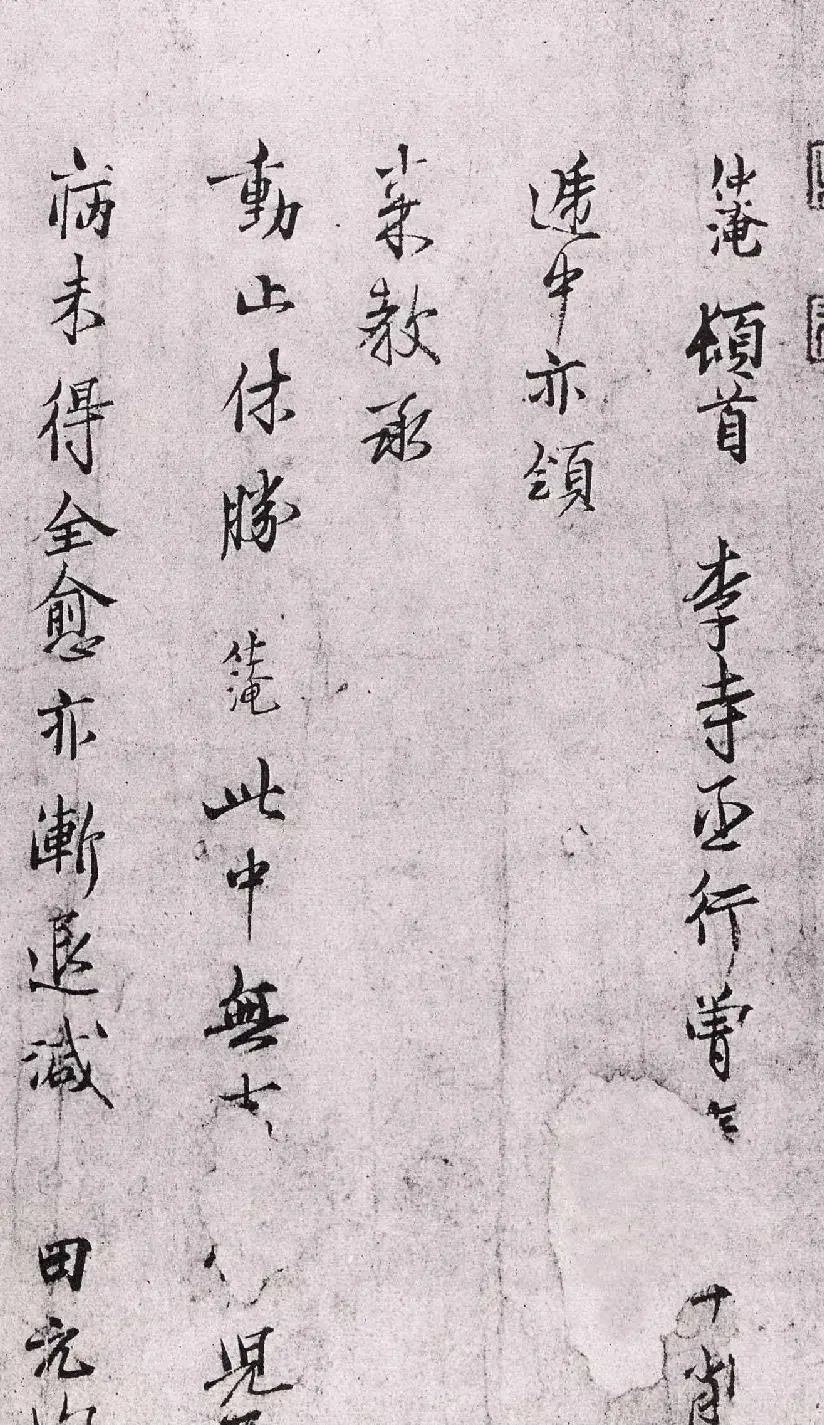 仲淹頓首 李寺丞行曾
遞中亦領
来教承
動止休勝 仲淹此中無
児
病未得全愈亦漸退減 田元